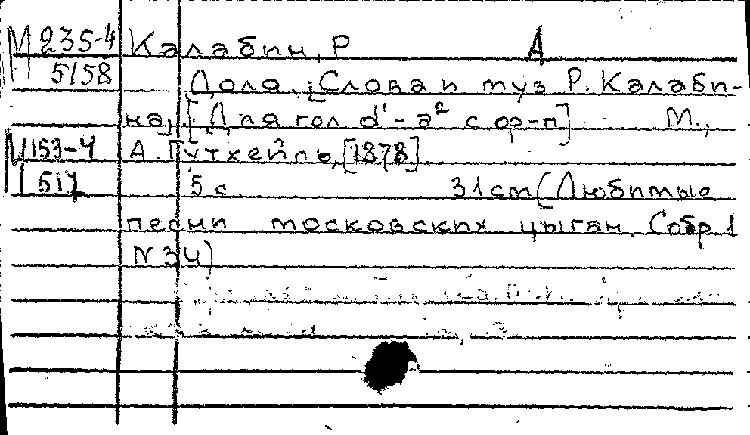 М 235-4 Калабин, Р Д
5158 Доля. [Слова и муз Р. Калаби-
на]. [Для гол d'-a² с ф-п] М.,
М 153-4 А. Гутхейль, [1878]
517 5 с 31 см (Любимые
песни московских цыган. Собр 1
N 34)